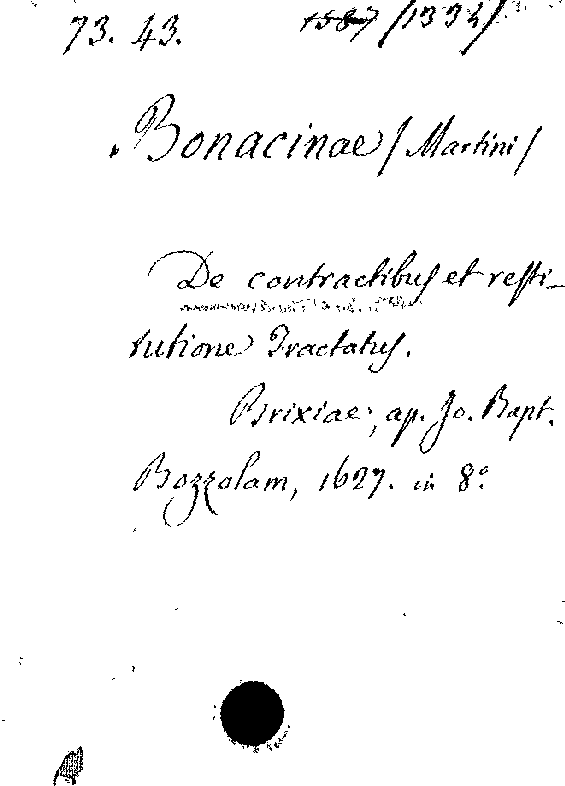 73. 43.
Bonacinae / Martini /
De contractibus et resti-
tutione Tractatus.
Brixiae, ap. Jo. Bapt.
Bozzolam, 1627. in 8°.